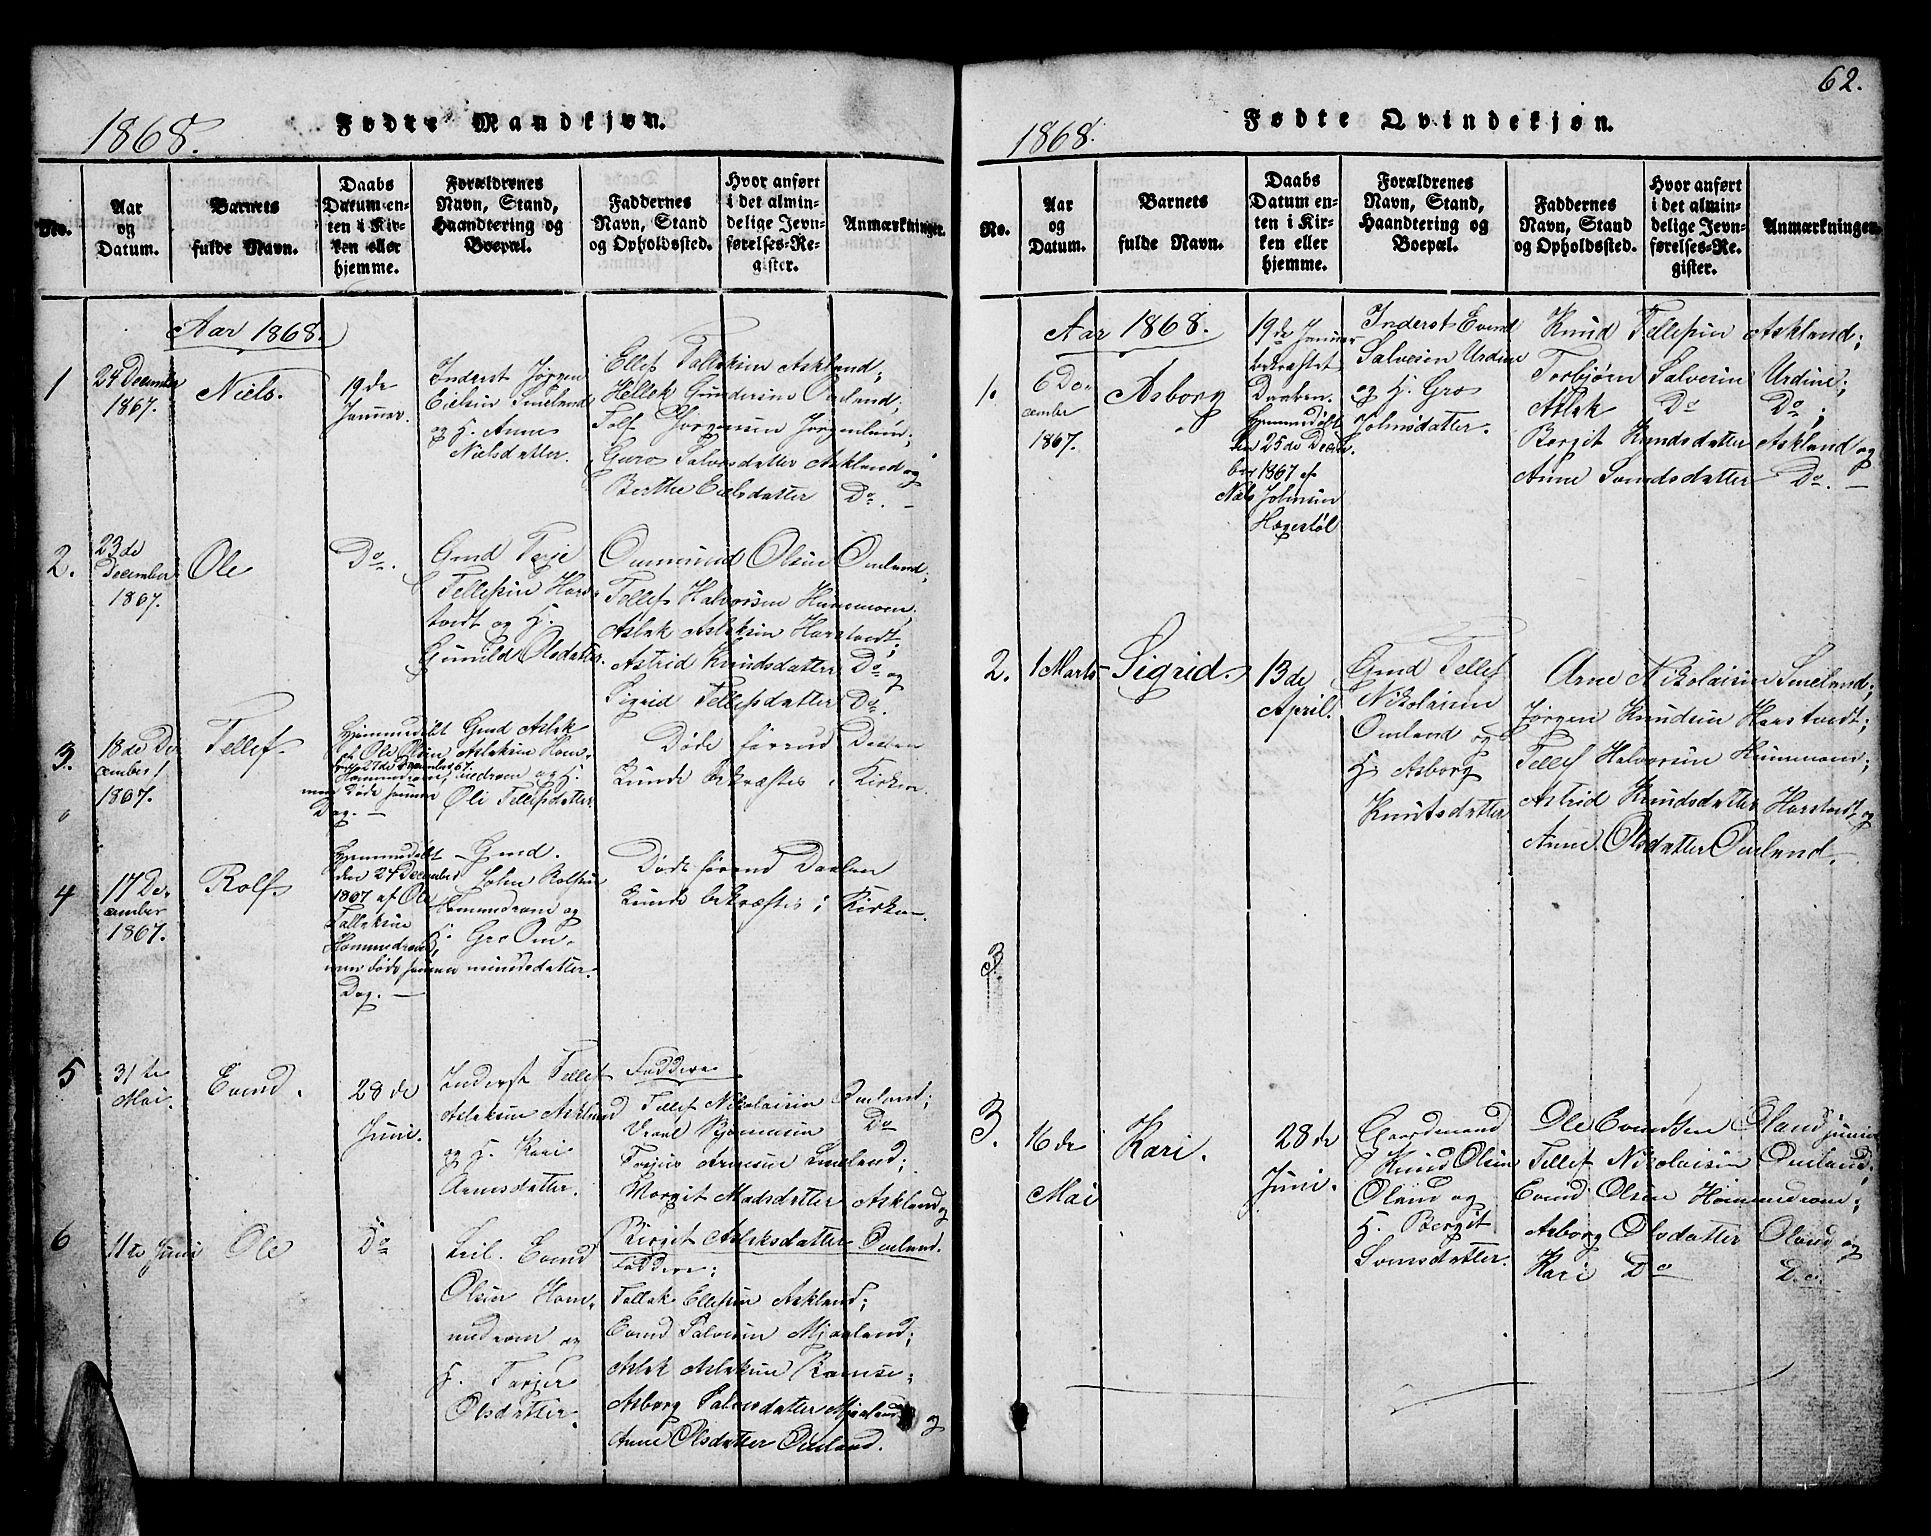 1868.
Fødte Mandkjøn.
No.
Aar og Datum.
Barnets fulde Navn.
Daabs Datum enten i Kirken eller hjemme.
Forældrenes Navn, Stand, Haandtering og Boepæl.
Faddernes Navn, Stand og Opholdssted.
Hvor anført i det almindelige Jevnførelses-Register.
Anmærkninger.
Aar 1868.
1
24 December
1867.
Niels.
19de
Januar.
Inderst Jørgen
Eielsen Smeland
og H. Anne
Nielsdatter.
Ellef Tallaksen Askland;
Hellek Gundersen Omland;
Guro Salvesdatter Askland og
Berthe Eielsdatter Do. –
2.
23de
December
1867.
Ole
Do.
Gmd Terje
Tellefsen Har-
tvedt og H.
Gunild Olsdatter.
Ommund Olsen Omland;
Tellef Halvorsen
Aslak Aslaksen Harstvedt;
Astrid Knudsdatter Do og
Sigrid Tellefsdatter Do.
3.
18de De-
cember
1867.
Tellef
Hjemmedøbt
af Ole Olsen
den 27de December 67.
men døde samme
Dag. –
Gmd Aslak
Aslaksen Hom-
medrom og H.
Oli Tellefsdatter.
Døde førend Daaben
kunde bekræftes i Kirken.
4
17 De-
cember
1867.
Rolf
Hjemmedøbt
den 24 December
1867 af Ole
Tallaksen
men døde samme
Dag. –
Gmd.
John Rolfsen
Hommedrom og
H. Gro Om-
mundsdatter.
Døde førend Daaben
kunde bekræftes i Kirken.
5
31te
Mai.
Evend.
28de
Juni.
Inderst Tellef
Aslaksen Askland
og H. Kari
Arnesdatter.
Faddere
Tellef Nikolaisen Omland;
Do
Terjus Arnesen Smeland;
Margit Madsdatter Askland og
Birgit Aslaksdatter Omland.
6
11te Juni
Ole
Do
Leil. Evend
Olsen Hom-
medrom og
H. Torjer
Olsdatter.
Faddere:
Tallak Ellefsen Askland;
Evend Salvesen Mjaaland;
Aslak Aslaksen Ramse;
Asborg Salvesdatter Mjaaland og
Anne Olsdatter Omland.
62.
1868.
Fødte Qvindekjøn.
No.
Aar og Datum.
Barnets fulde Navn.
Daabs Datum enten i Kirken eller hjemme.
Forældrenes Navn, Stand, Haandtering og Boepæl.
Faddernes Navn, Stand og Opholdssted.
Hvor anført i det almindelige Jevnførelses-Register.
Anmærkninger.
Aar 1868.
1.
6 De-
cember
1867.
Asborg
19de Januar
bekræftet
Daaben.
Hjemmedøbt
den 25de Decem-
ber 1867 af
Niels Johnsen
Inderst Evend
Salvesen Urdine
og H. Gro
Johnsdatter.
Knud Tellefsen Askland;
Torbjørn Salvesen Urdine;
Aslak Do Do;
Borgit Knudsdatter Askland og
Anne Svendsdatter Do. –
2.
1 Marts
Sigrid.
13de
April.
Gmd Tellef
Nikolaisen
Omland og
H. Asborg
Knutsdatter
Arne Nikolaisen Smeland;
Jørgen Knudsen Harstvedt;
Tellef Halvorsen
Astrid Knudsdatter Harstvedt og
Anne Olsdatter Omland. –
3
3.
16de
Mai
Kari.
28de
Juni.
Gaardmand
Knud Olsen
Oland og
H. Bergit
Svensdatter.
Ole Evendsen Oland junior
Tellef Nikolaisen Omland;
Evend Olsen Hommedrom;
Asborg Olsdatter Oland og
Kari Do Do